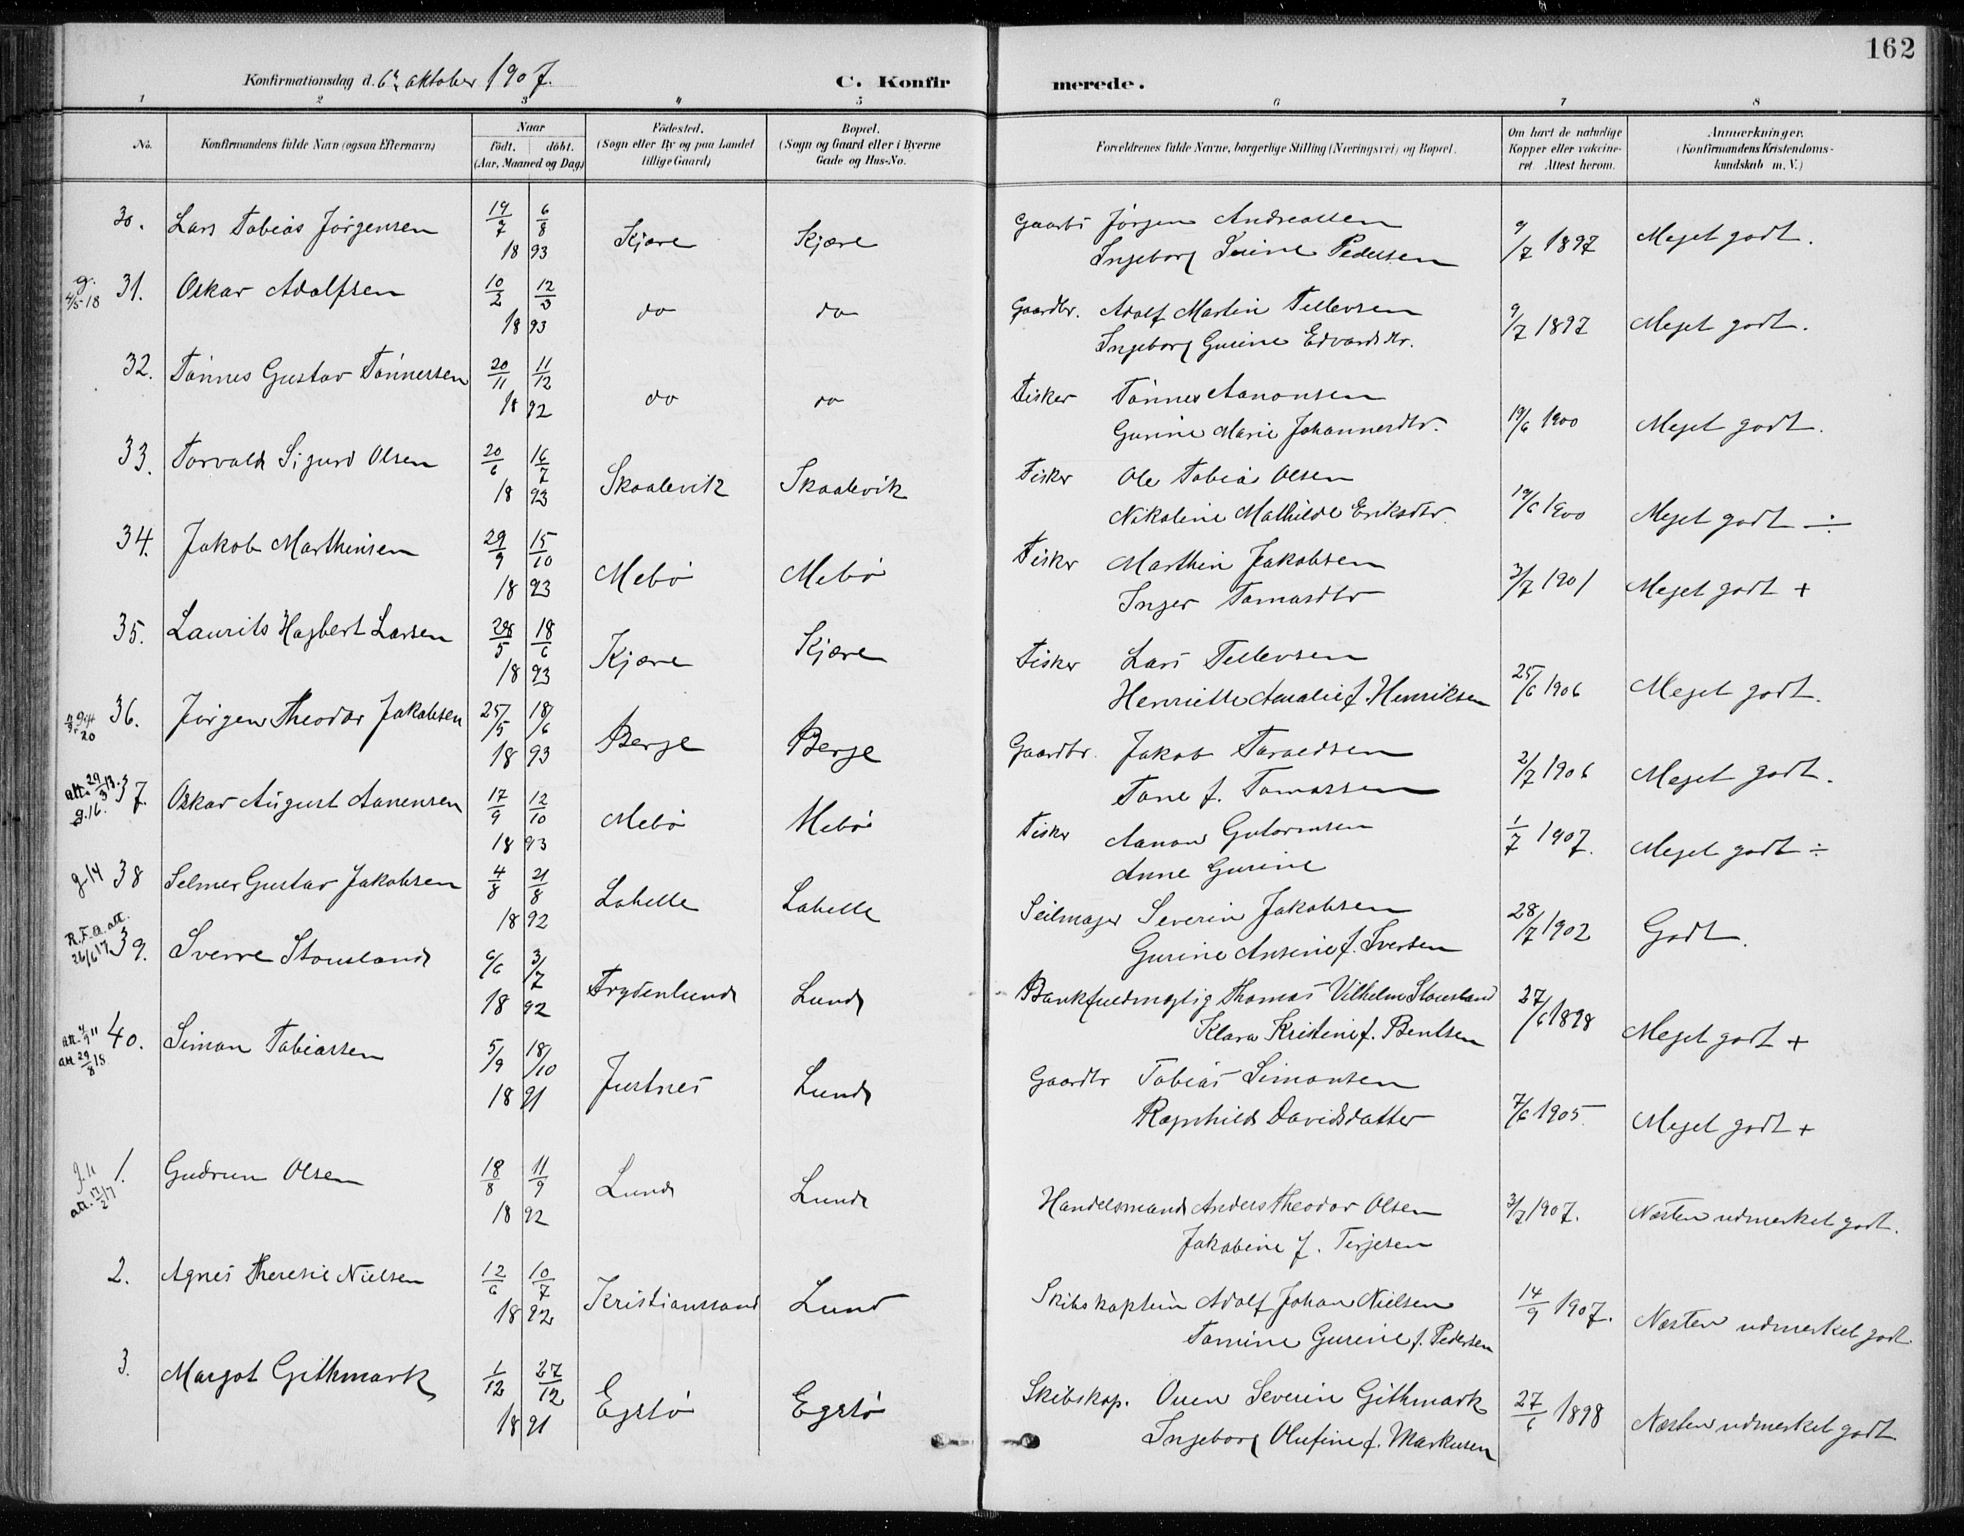 162
Konfirmationsdag d. 6te oktober 1907.
C. Konfirmerede.
1 2 3 4 5 6 7 8
No.
Konfirmandens fulde Navn (ogsaa Efternavn)
Naar
födt. döbt.
(Aar, Maaned og Dag)
Födested.
(Sogn eller By og paa Landet
tillige Gaard)
Bopæl.
(Sogn og Gaard eller i Byerne
Gade og Hus-No.
Forældrenes fulde Navne, borgerlige Stilling (Næringsvei) og Bopæl.
Om havt de naturlige
Kopper eller vakcine-
ret. Attest herom.
Anmerkninger.
(Konfirmandens Kristendoms-
kundskab m. V.)
30. Lars Tobias Jörgensen 19/7 6/8 1893 Kjære Kjære Gaardb Jörgen Andreassen 9/7 1897 Meget godt.
Ingeborg Pedersen
g. 4/5-18 31. Oskar Adolfsen 10/2 12/3 1893 do do Gaardbr. Adolf Martin Tellevsen 9/7 1897 Meget godt.
Ingeborg Gurine Edvardsdtr.
32. Tönnes Gustav Tönnessen 20/11 11/12 1892 do do Fisker Tönnes Aanonsen 19/6 1900 Meget godt.
Gurine Marie Johannesdtr.
33. Torvald Sigurd Olsen 20/6 16/7 1893 Skaalevik Skaalevik Fisker Ole Tobias Olsen 19/6 1900 Meget godt ÷
Nikoline Mathilde Eriksdtr.
34. Jakob Marthinsen 29/9 15/10 1893 Mebö Mebö Fisker Marthin Jakobsen 3/7 1901 Meget godt +
Inger Tomasdtr
35. Laurits Hagbert Larsen 28/5 18/6 1893 Kjære Kjære Fisker Lars Tellevsen 25/6 1906 Meget godt.
Henriette Amalie f. Henriksen
36. Jörgen Theodor Jakobsen 25/5 18/6 1893 Berge Berge Gaardbr. Jakob Taraldsen 2/7 1906 Meget godt.
Tone f. Tomassen
att. 29/3 13. g.16. 37. Oskar August Aanensen 17/9 12/10 1893 Mebö Mebö Fisker Aanon Gutormsen 1/7 1907. Meget godt ÷
Anne Gurine
g. 14 38 Selmer Gustav Jakobsen 4/8 21/8 1892 Lahelle Lahelle Seilmager Severin Jakobsen 28/7 1902 Godt.
Gurine Ansine f. Iversen
R.F.A. att. 26/6 17 39. Sverre Stousland 6/6 3/7 1892 Frydenlund Lund Bankfuldmægtig Thomas Vilhelm Stousland 27/6 1898 Meget godt +
Klara Kristine f. Bentsen
att. 4/9 11 att. 29/8 18 40. Simon Tobiassen 5/9 18/10 1891 Justnes Lund Gaardbr Tobias Simonsen 7/6 1905. Meget godt +
Ragnhild Davidsdatter
g. 11 att. 17/2 17 1. Gudrun Olsen 18/8 11/9 1892 Lund Lund Handelsmand Anders Theodor Olsen 3/7 1907. Næsten udmerket godt.
Jakobine f. Terjesen
2. Agnes Theresie Nielsen 12/6 10/7 1892 Kristianssand Lund Skibskaptein Adolf Johan Nielsen 14/9 1907. Næsten udmerket godt
Tomine Gurine f. Pedersen
3. Margot Githmark 1/12 27/12 1891 Egstö Egstö Skibskap. Ouen Severin Githmark 27/6 1898 Næsten udmerket godt
Ingeborg Olufine f. Markusen